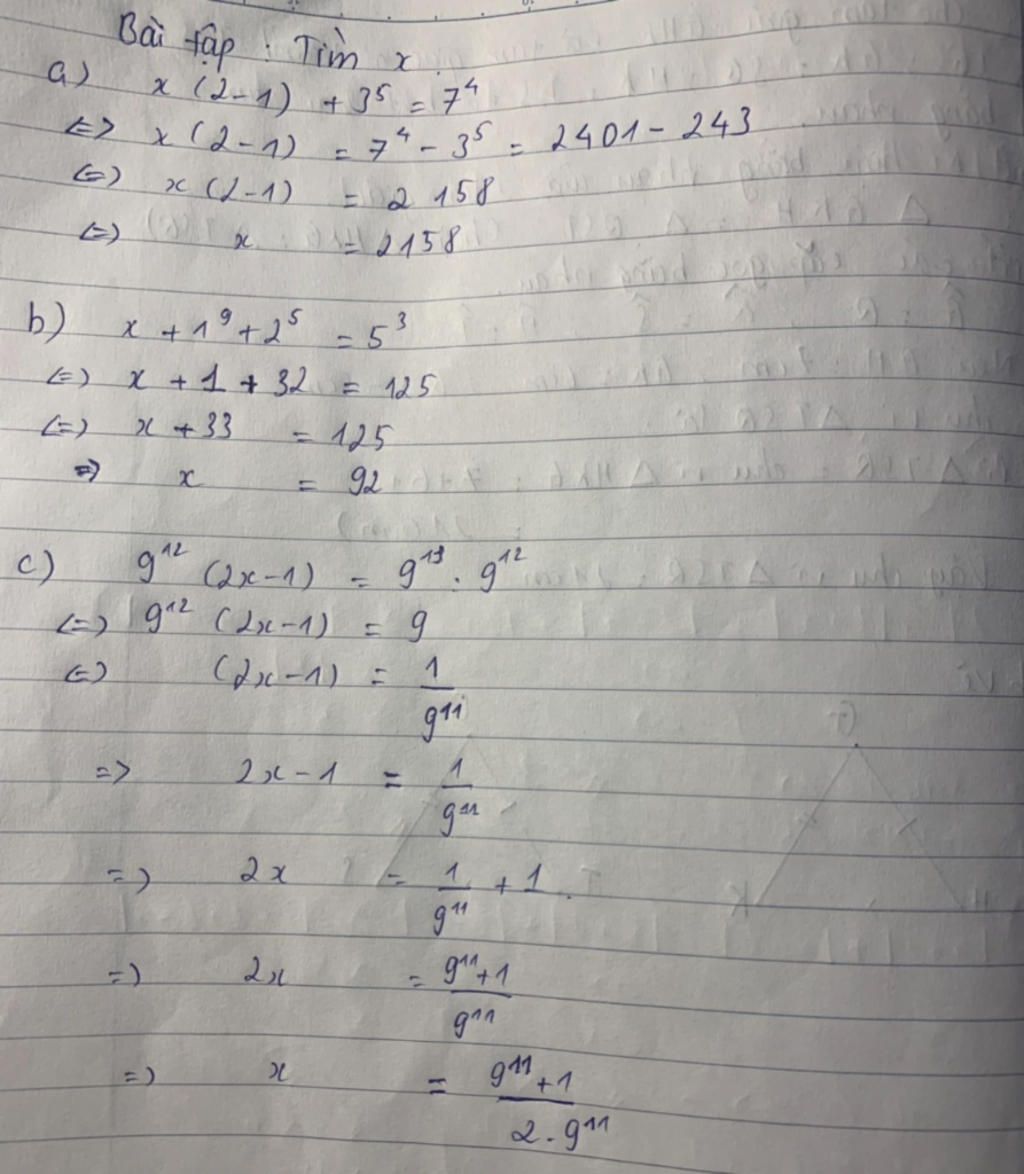 Bài tập : Tìm x.
a) x (2-1) + 3⁵ = 7⁴
<=> x (2-1) = 7⁴ - 3⁵ = 2401 - 243
<=> x (2-1) = 2 158
<=> x = 2158
b) x + 1⁹ + 2⁵ = 5³
<=> x + 1 + 32 = 125
<=> x + 33 = 125
=> x = 92
c) 9¹² (2x-1) = 9¹³ . 9¹²
<=> 9¹² (2x-1) = 9
<=> (2x-1) = 1/9¹¹
=> 2x-1 = 1/9¹¹
=> 2x = 1/9¹¹ + 1.
=> 2x = (9¹¹+1)/9¹¹
=> x = (9¹¹+1)/(2.9¹¹)